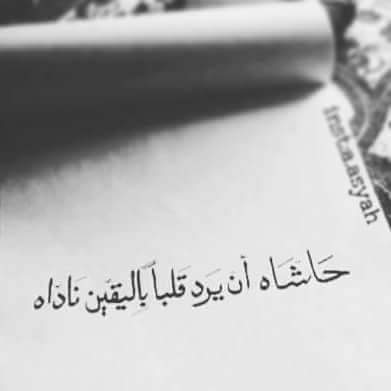 instaasyah
حَاشَاه أن يَرد قَلباً بِاليَقِين نَادَاه